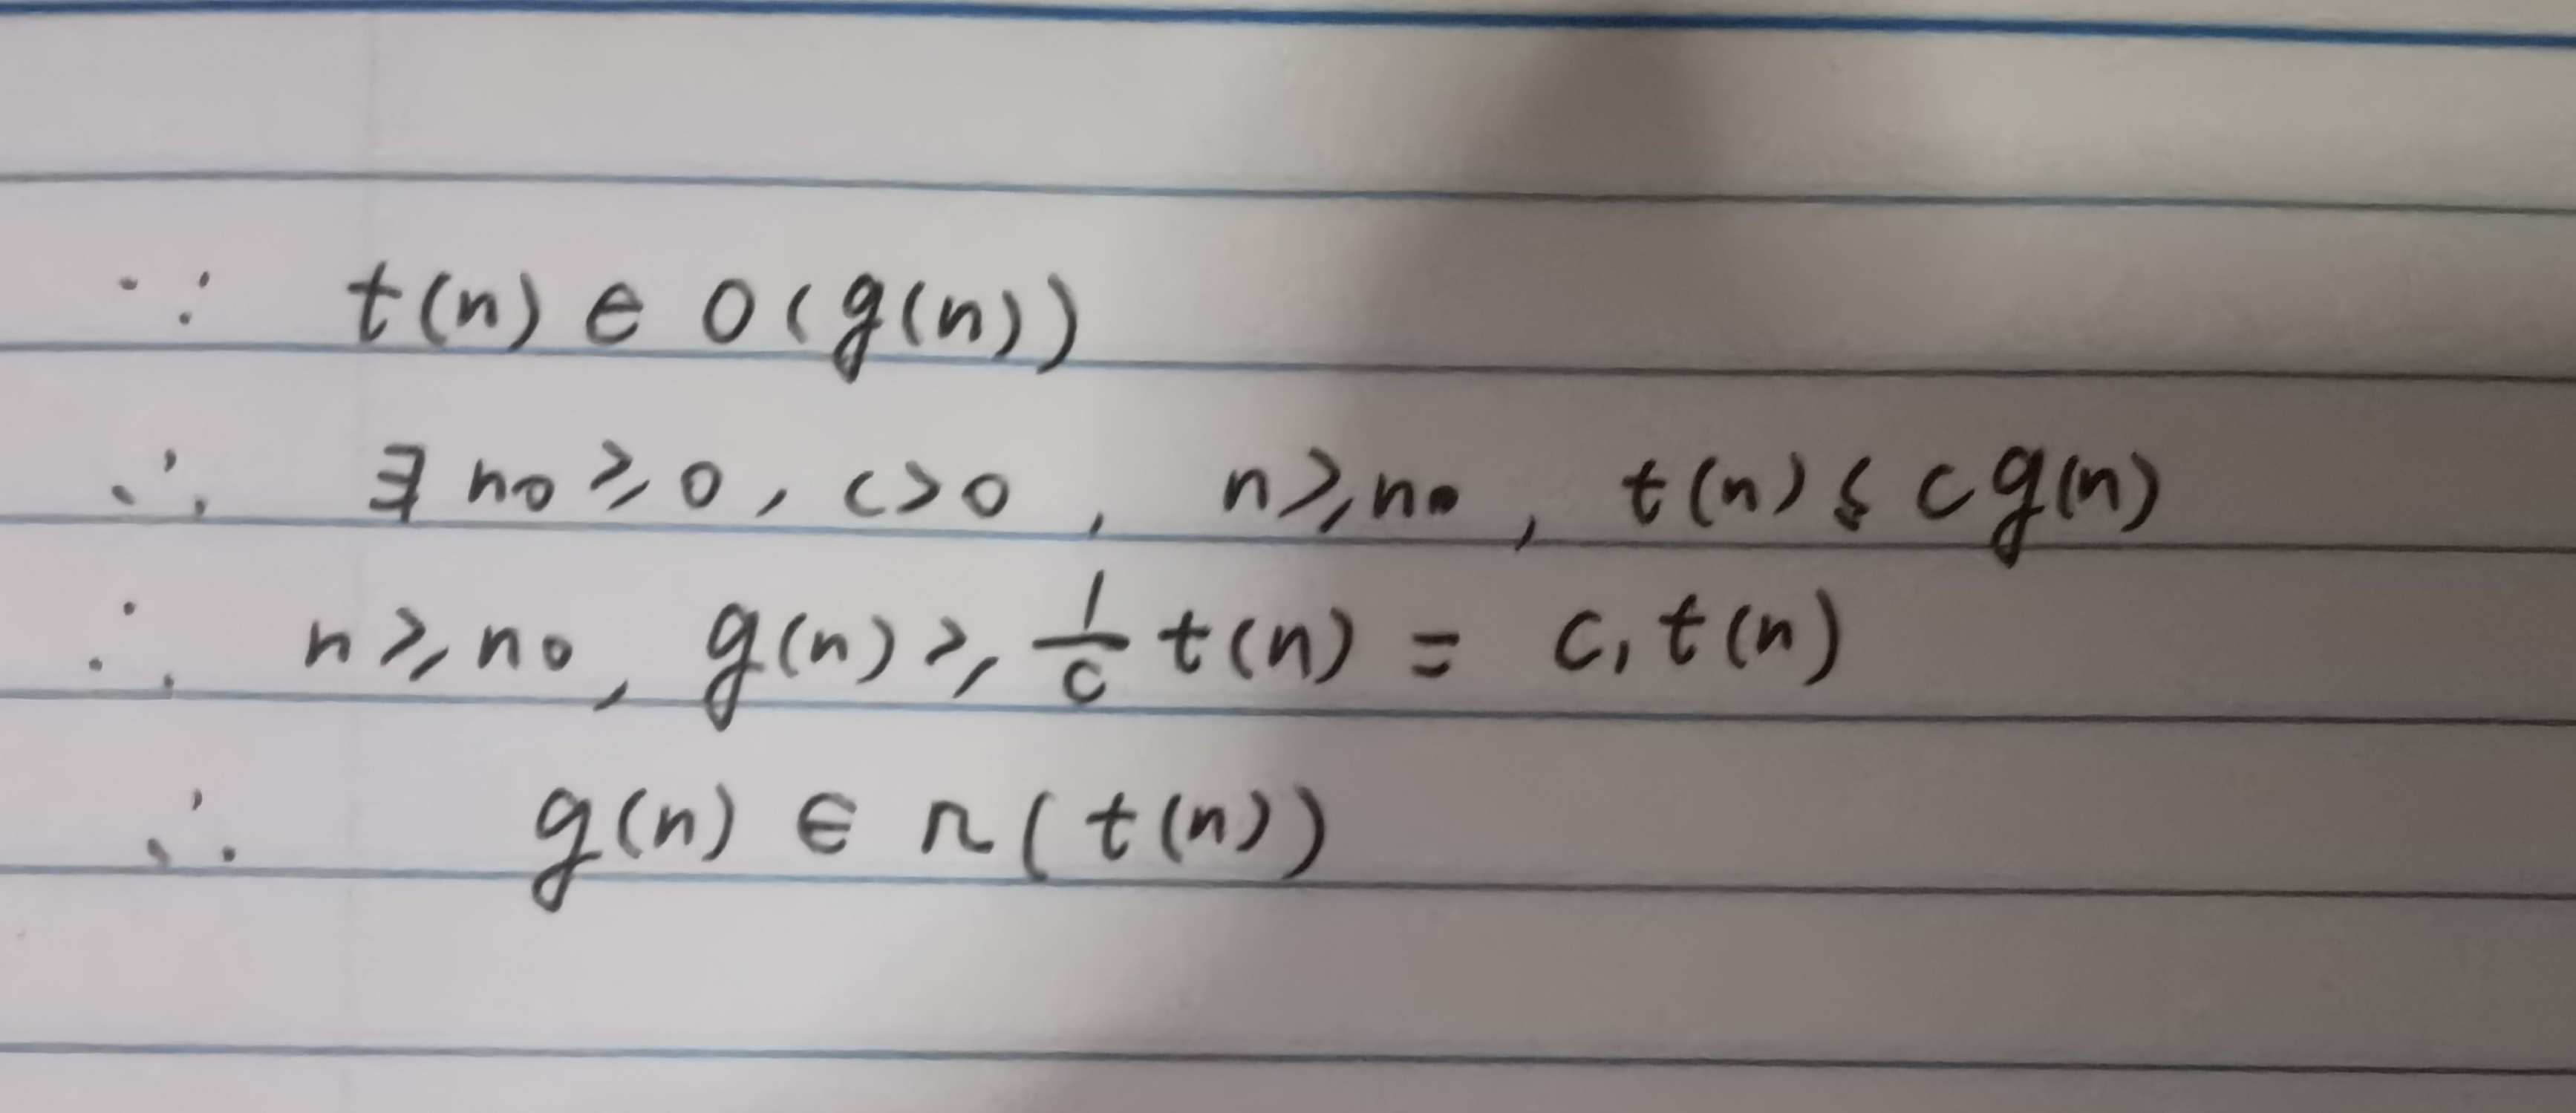 ∵ t(n) ∈ O(g(n))
∴ ∃ n₀ ⩾ 0, c > 0, n ⩾ n₀, t(n) ⩽ c g(n)
∴ n ⩾ n₀, g(n) ⩾ 1/c t(n) = c₁ t(n)
∴ g(n) ∈ Ω(t(n))